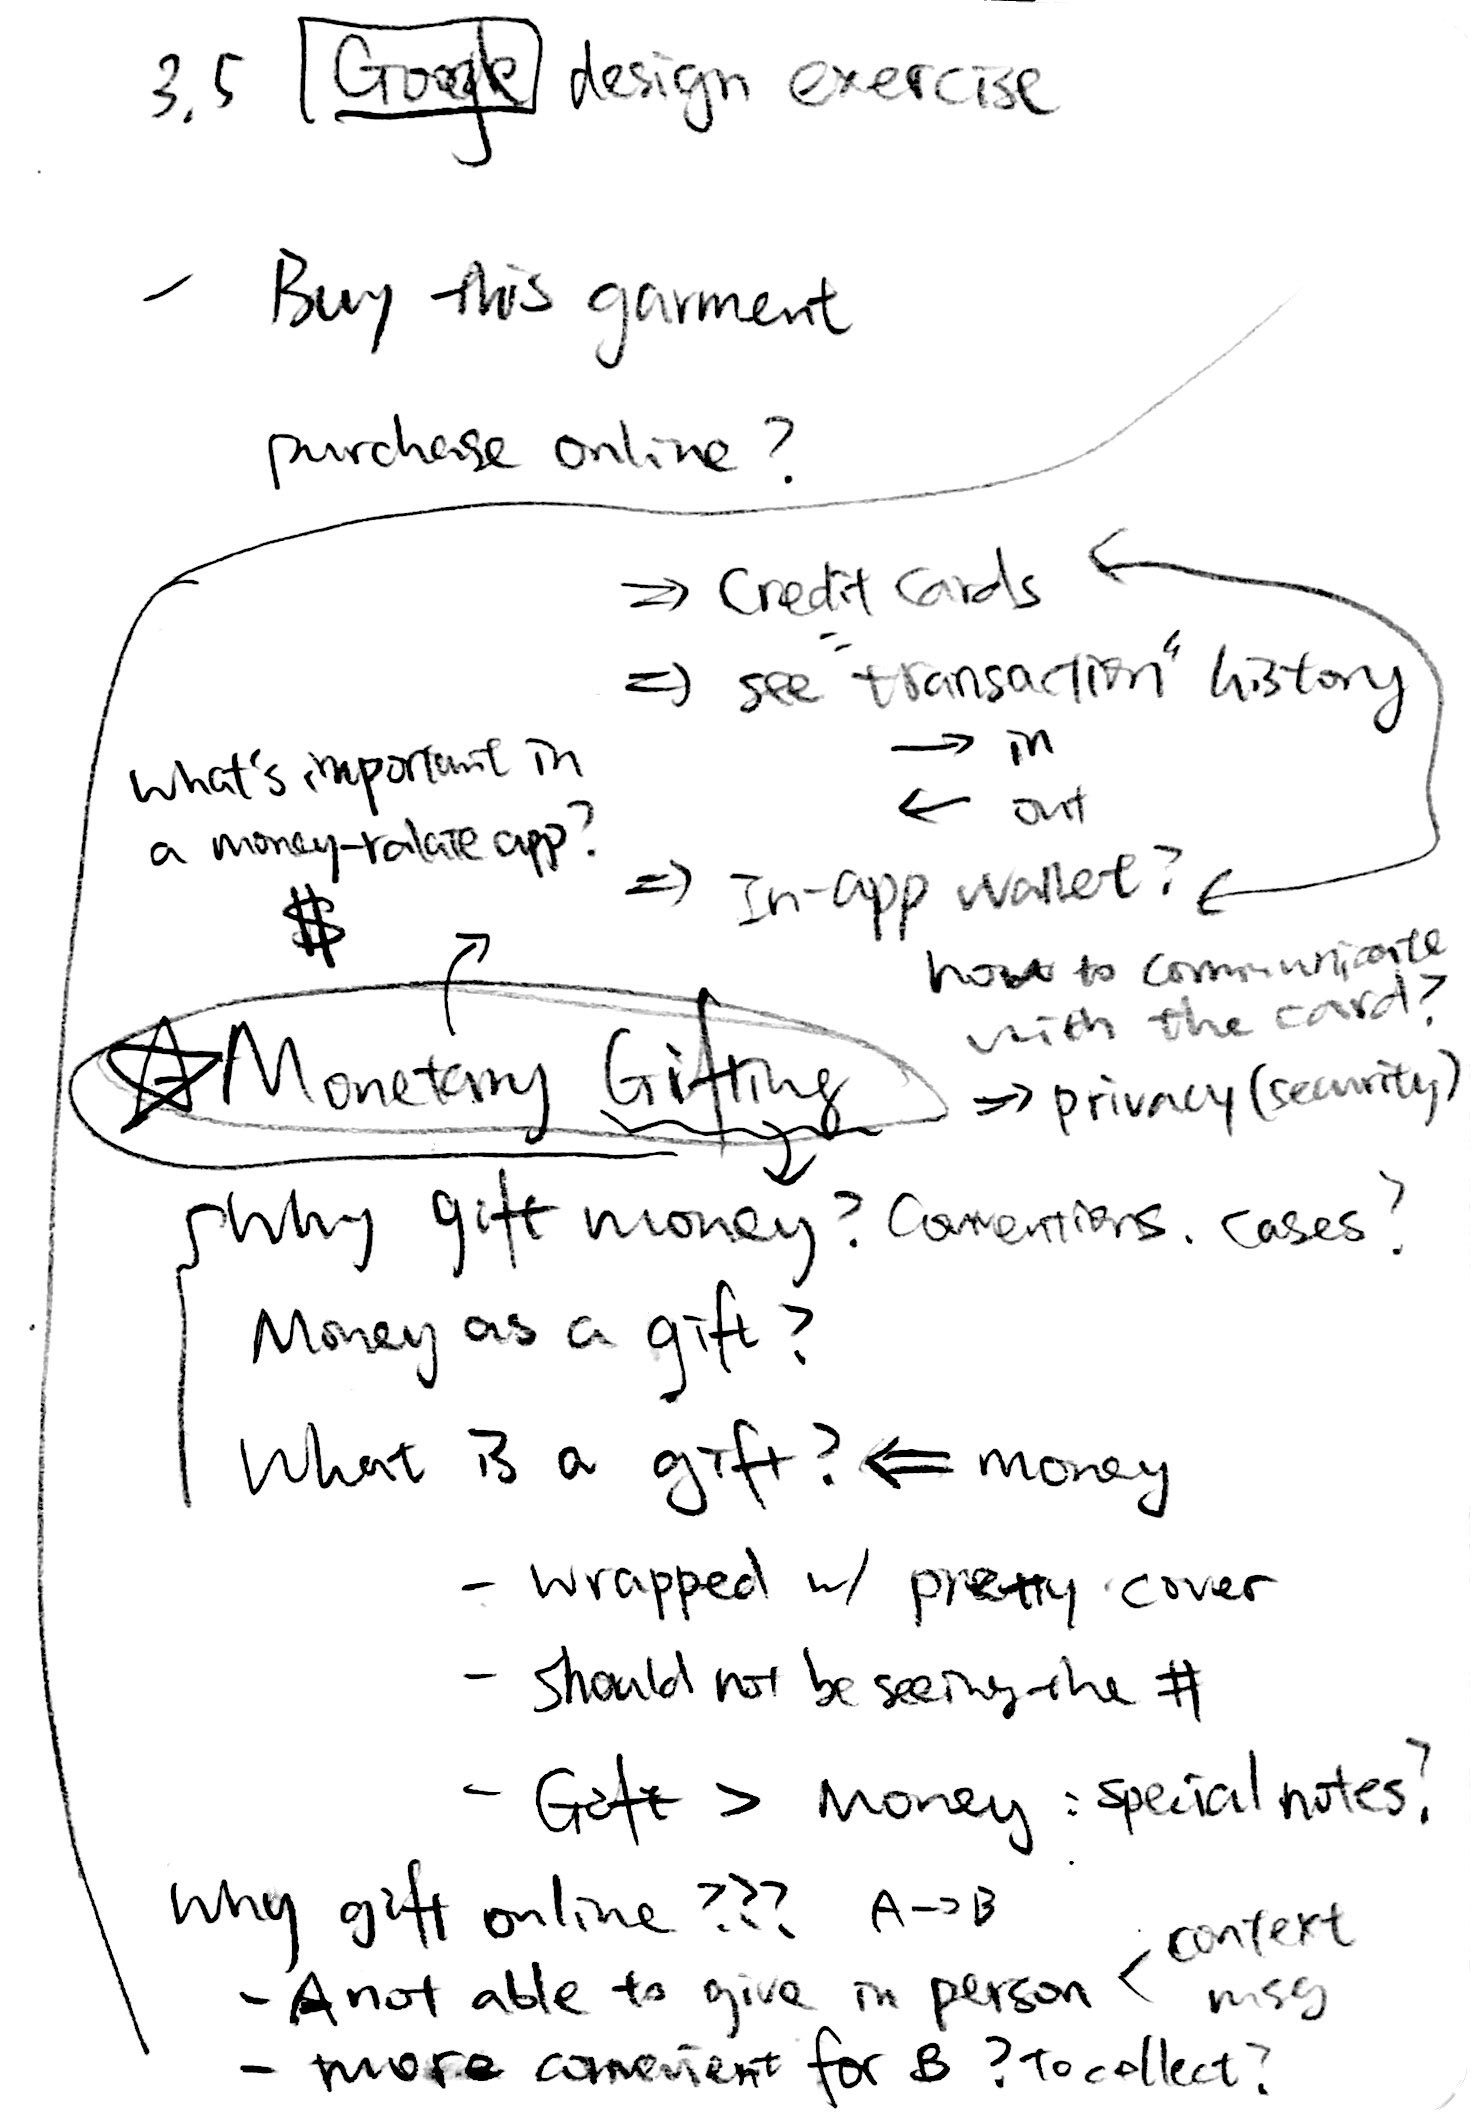 3.5 Google design exercise
- Buy this garment
purchase online?
⇒ Credit Cards
⇒ see "transaction" history
→ in
← out
what's important in
a money-ralate app?
$
⇒ In-app wallet?
how to communicate
with the card?
⇒ privacy (security)
☆ Monetary Gifting
Why gift money? Conventions. cases?
Money as a gift?
What is a gift? ⇐ money
- wrapped w/ pretty cover
- should not be seeing the #
- Gift > Money : special notes?
Why gift online ??? A→B
- A not able to give in person < context
msg
- more convenient for B ? To collect?